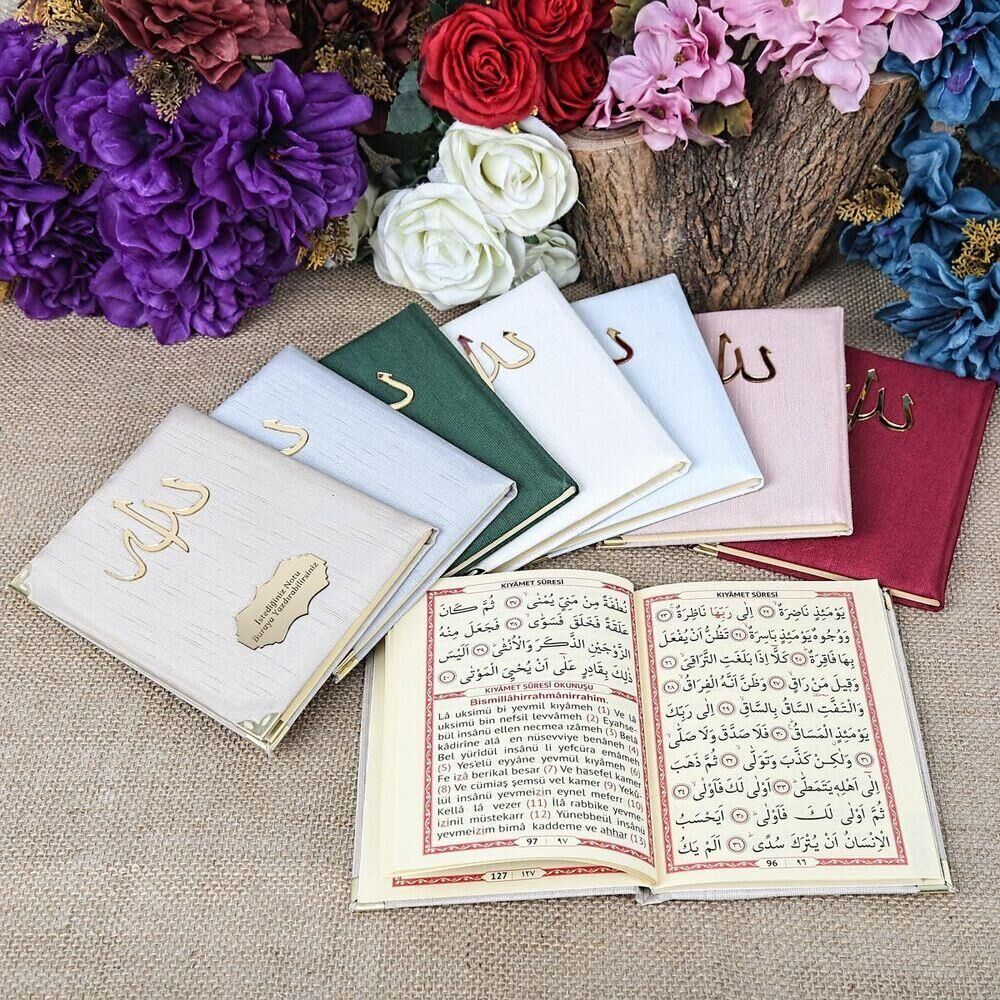 الله
İstediğiniz Notu
Buraya Yazdırabilirsiniz
KIYÂMET SÛRESİ
يَوْمَئِذٍ نَاضِرَةٌ ﴿٢٢﴾ اِلٰى رَبِّهَا نَاظِرَةٌ ﴿٢٣﴾
وَوُجُوهٌ يَوْمَئِذٍ بَاسِرَةٌ ﴿٢٤﴾ تَظُنُّ اَنْ يُفْعَلَ
بِهَا فَاقِرَةٌ ﴿٢٥﴾ كَلَّا اِذَا بَلَغَتِ التَّرَاقِيَ ﴿٢٦﴾
وَقِيلَ مَنْ رَاقٍ ﴿٢٧﴾ وَظَنَّ اَنَّهُ الْفِرَاقُ ﴿٢٨﴾
وَالْتَفَّتِ السَّاقُ بِالسَّاقِ ﴿٢٩﴾ اِلٰى رَبِّكَ
يَوْمَئِذٍ الْمَسَاقُ ﴿٣٠﴾ فَلَا صَدَّقَ وَلَا صَلّٰى ﴿٣١﴾
وَلٰكِنْ كَذَّبَ وَتَوَلّٰى ﴿٣٢﴾ ثُمَّ ذَهَبَ
اِلٰى اَهْلِهِ يَتَمَطّٰى ﴿٣٣﴾ اَوْلٰى لَكَ فَاَوْلٰى ﴿٣٤﴾
ثُمَّ اَوْلٰى لَكَ فَاَوْلٰى ﴿٣٥﴾ اَيَحْسَبُ
الْاِنْسَانُ اَنْ يُتْرَكَ سُدًى ﴿٣٦﴾ اَلَمْ يَكُ
96 ٩٦
KIYÂMET SÛRESİ
نُطْفَةً مِنْ مَنِيٍّ يُمْنٰى ﴿٣٧﴾ ثُمَّ كَانَ
عَلَقَةً فَخَلَقَ فَسَوّٰى ﴿٣٨﴾ فَجَعَلَ مِنْهُ
الزَّوْجَيْنِ الذَّكَرَ وَالْاُنْثٰى ﴿٣٩﴾ اَلَيْسَ
ذٰلِكَ بِقَادِرٍ عَلٰٓى اَنْ يُحْيِيَ الْمَوْتٰى ﴿٤٠﴾
KIYAMET SÛRESİ OKUNUŞU
Bismillâhirrahmânirrahîm.
Lâ uksimü bi yevmil kıyâmeh (1) Ve lâ
uksimü bin nefsil levvâmeh (2) Eyahse-
bül insânü ellen necmea ızâmeh (3) Belâ
kâdirîne alâ en nüsevviye benâneh (4)
Bel yürîdül insânü li yefcüra emâmeh
(5) Yes'elü eyyâne yevmül kıyâmeh (6)
Fe izâ berikal besar (7) Ve hasefel kamer
(8) Ve cümiaş şemsü vel kamer (9) Yekû-
lül insânü yevmeizin eynel meferr (10)
Kellâ lâ vezer (11) İlâ rabbike yevme-
izinil müstekarr (12) Yünebbeül insânü
yevmeizim bimâ kaddeme ve ahhar (13)
97 ٩٧
127 ١٢٧